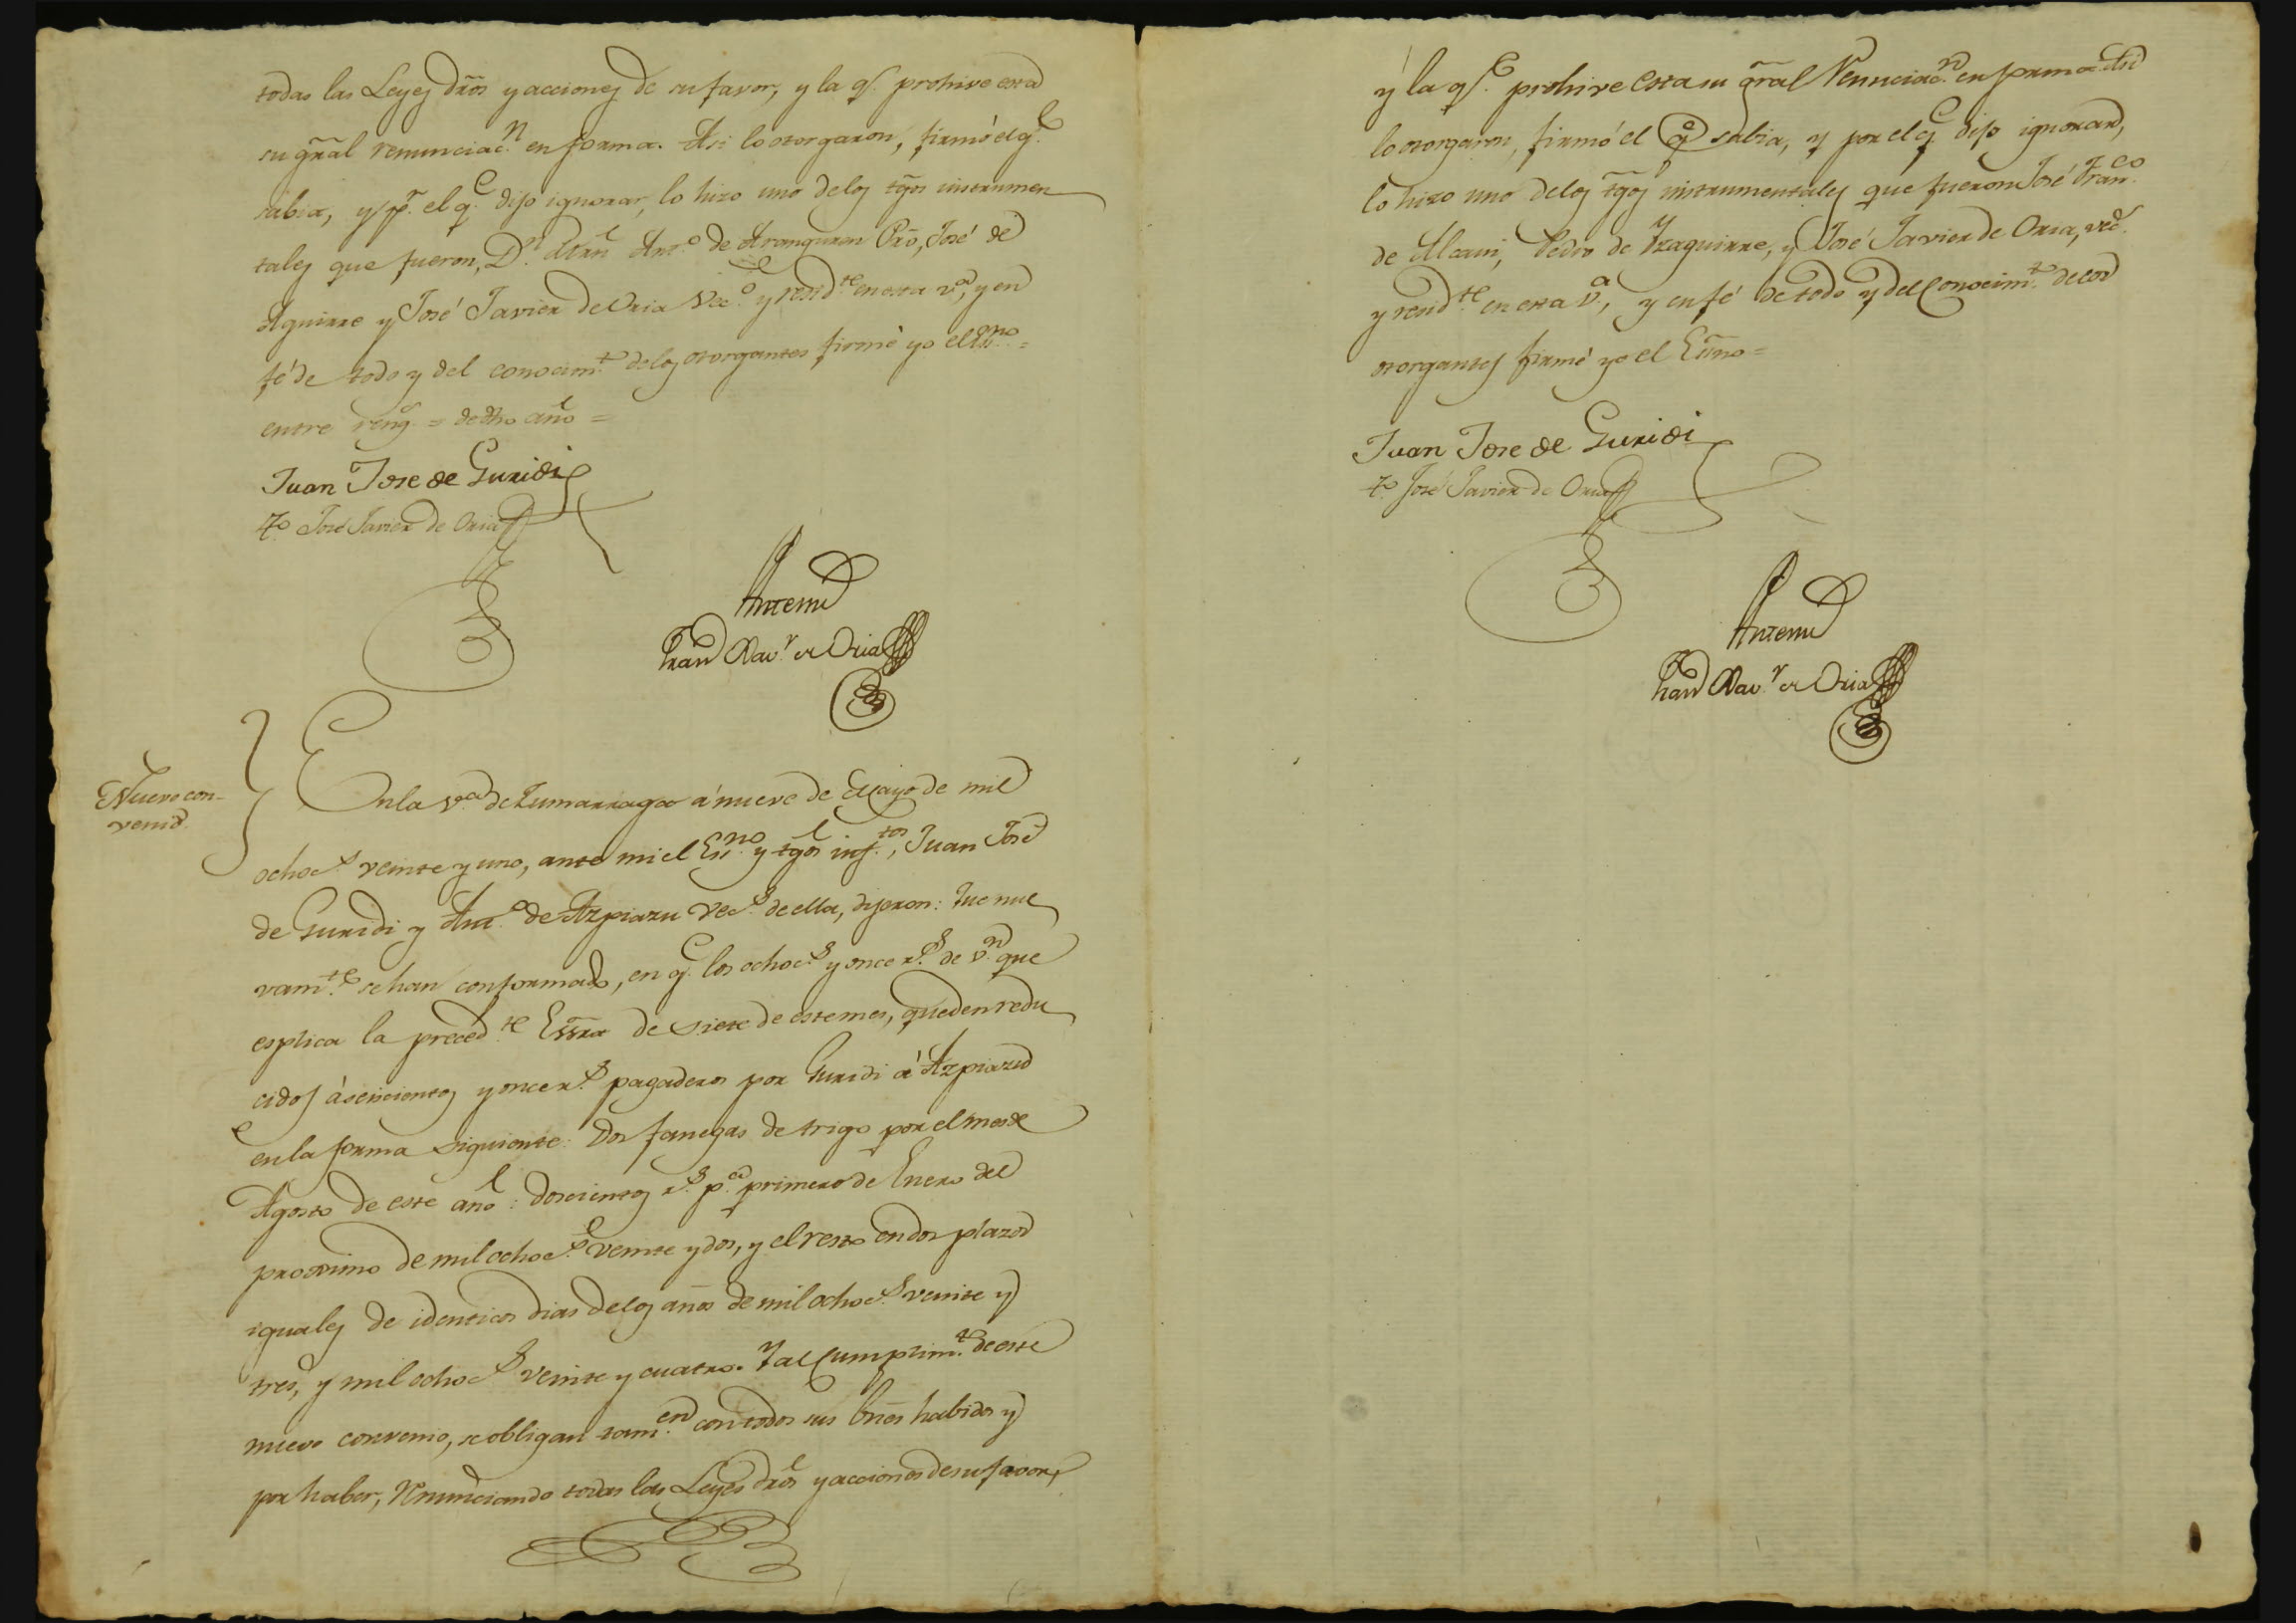 todas las Leyes dr̃os y acciones de su favor, y la q.e prohive esta
su gr̃al renunciac.n en forma. Asi lo otorgaron, firmó el q.e
sabia, y p.r el q.e dijo ignorar, lo hizo uno de los tg̃os instrumen
tales que fueron, D.n Ant.o de Aranguren Pr̃o, José de
Aguirre y José Javier de Oria Vec.s y resid.te en esta v.a, y en
fé de todo y del conocim.to de los otorgantes firmé yo el Ess.no =
entre reng.s = de dho año =
Juan Jose de Guridi
T.o José Javier de Oria
Antemi
Fran Xav.r de Oria
Nuevo con-
venio
En la v.a de Zumarraga á nueve de Mayo de mil
ochoc.s veinte y uno, ante mi el Ess.no y tg̃os inf.tos, Juan José
de Guridi y Ant.o de Azpiazu Vec.s de ella, dijeron: Que nue
vam.te se han conformado, en q.e los ochoc.s y once r.s de v.n que
esplica la preced.te Ess̃ra de siete de este mes, queden redu
cidos á seiscientos y once r.s pagaderos por Guridi á Azpiazu
en la forma siguiente: Dos fanegas de trigo por el mes de
Agosto de este año: doscientos r.s p.a primero de Enero del
proximo de mil ochoc.s veinte y dos, y el resto en dos plazos
iguales de identicos dias de los años de mil ochoc.s veinte y
tres, y mil ochoc.s veinte y cuatro. Y al Cumplim.to de este
nuevo convenio, se obligan tam.en con todos sus bñes habidos y
por haber, renunciando todas las Leyes dr̃os y acciones de su favor,
y la q.e prohive esta su gr̃al Renunciac.n en forma. Asi
lo otorgaron, firmó el q.e sabia, y por el q.e dijo ignorar,
lo hizo uno de los tg̃os instrumentales que fueron José Fran.co
de Alcain, Pedro de Yzaguirre, y José Javier de Oria, vec.s
y resid.te en esta v.a, y en fé de todo y del Conocim.to de los
otorgantes firmé yo el Ess̃no =
Juan Jose de Guridi
T.o José Javier de Oria
Antemi
Fran Xav.r de Oria